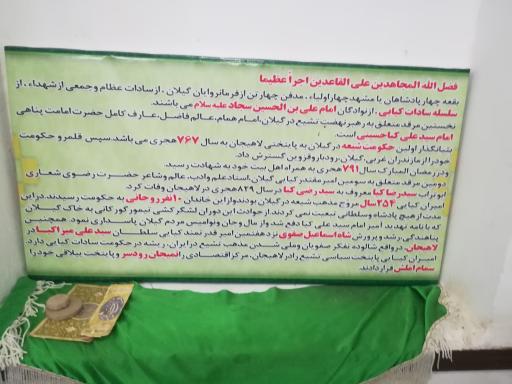 فضل الله المجاهدین علی القاعدین اجراً عظیما
بقعه چهار پادشاهان یا مشهد چهار اولیاء، مدفن چهار تن از فرمانروایان گیلان، از سادات عظام و جمعی از شهداء، از
سلسله سادات کیایی، از نوادگان امام علی بن الحسین سجاد علیه سلام می باشند.
نخستین مرقد متعلق به رهبر نهضت تشیع در گیلان، امام همام، عالم فاضل، عارف کامل حضرت امامت پناهی
امام سید علی کیا حسینی است.
بنیانگذار اولین حکومت شیعه در گیلان به پایتختی لاهیجان به سال ۷۶۷ هجری می باشد. سپس قلمرو حکومت
خود را از مازندران غربی، گیلان، رودبار و قزوین گسترش داد.
و در رمضان المبارک سال ۷۹۱ هجری به همراه اهل بیت خود به شهادت رسید.
دومین مرقد متعلق به سومین امیر مقتدر کیایی گیلان، استاد علم و ادب، عالم و شاعر حضرت رضوی شعاری
ابو تراب سید رضا کیا معروف به سید رضی کیا در سال ۸۲۹ هجری در لاهیجان وفات کرد.
امیران کیایی ۲۵۳ سال مروج مذهب شیعه در گیلان بودند و از این خاندان ۱۰ نفر روحانی به حکومت رسیدند. در این
مدت از هیچ پادشاه و سلطانی تبعیت نمی کردند. از حوادث این دوران لشکر کشی تیمور گورکانی به خاک گیلان
که با نامه تهدید آمیز امام سید علی کیا دفع شد و از مال و جان و نوامیس مردم گیلان پاسداری نمود. همچنین
پناهندگی، رشد و پرورش شاه اسماعیل صفوی نزد هفتمین امیر قدرتمند کیایی سلطان سید علی میرزا کیا در
لاهیجان. در واقع شالوده تفکر صفویان و ملی شدن مذهب تشیع در ایران، ریشه در حکومت سادات کیایی دارد.
امیران کیایی پایتخت سیاسی تشیع را در لاهیجان، مرکز اقتصادی را تمیجان رودسر و پایتخت ییلاقی خود را
سمام املش قرار دادند.